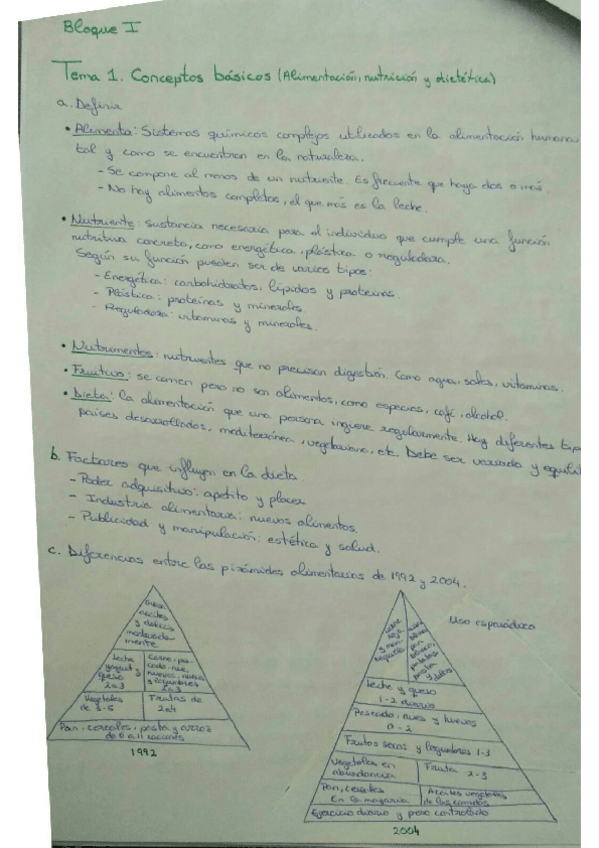 Bloque I
Tema 1. Conceptos básicos (Alimentación, nutrición y dietética)
a. Definir
• Alimento: Sistemas químicos complejos utilizados en la alimentación humana
tal y como se encuentran en la naturaleza.
- Se compone al menos de un nutriente. Es frecuente que haya dos o más.
- No hay alimentos completos, el que más es la leche.
• Nutriente: sustancia necesaria para el individuo que cumple una función
nutritiva concreta, como energética, plástica o reguladora.
Según su función pueden ser de varios tipos:
- Energética: carbohidratos, lípidos y proteínas.
- Plástica: proteínas y minerales.
- Reguladora: vitaminas y minerales.
• Nutrimentos: nutrientes que no precisan digestión. Como agua, sales, vitaminas.
• Fruitivo: se comen pero no son alimentos, como especias, café, alcohol.
• Dieta: la alimentación que una persona ingiere regularmente. Hay diferentes tip
países desarrollados, mediterránea, vegetariana, etc. Debe ser variada y equili
b. Factores que influyen en la dieta
- Poder adquisitivo: apetito y placer
- Industria alimentaria: nuevos alimentos.
- Publicidad y manipulación: estética y salud.
c. Diferencias entre las pirámides alimentarias de 1992 y 2004.
Grasas
aceites
y dulces
moderada-
mente
Leche
yogurt y
queso
2 a 3
Carne, pes-
cado, ave,
huevos, nueces
y legumbres
2 a 3
Vegetales
de 3-5
Frutas de
2 a 4
Pan, cereales, pasta y arroz
de 6 a 11 raciones
1992
Carne
roja
y man-
tequilla
arroz
blanco
pan
blanco,
patatas
pasta
y dulces
Uso esporádico
Leche y queso
1-2 diario
Pescado, aves y huevos
0-2
Frutos secos y legumbres 1-3
Vegetales en
abundancia
Fruta 2-3
Pan, cereales
En la mayoría
Aceites vegetales
de las comidas
Ejercicio diario y peso controlado
2004